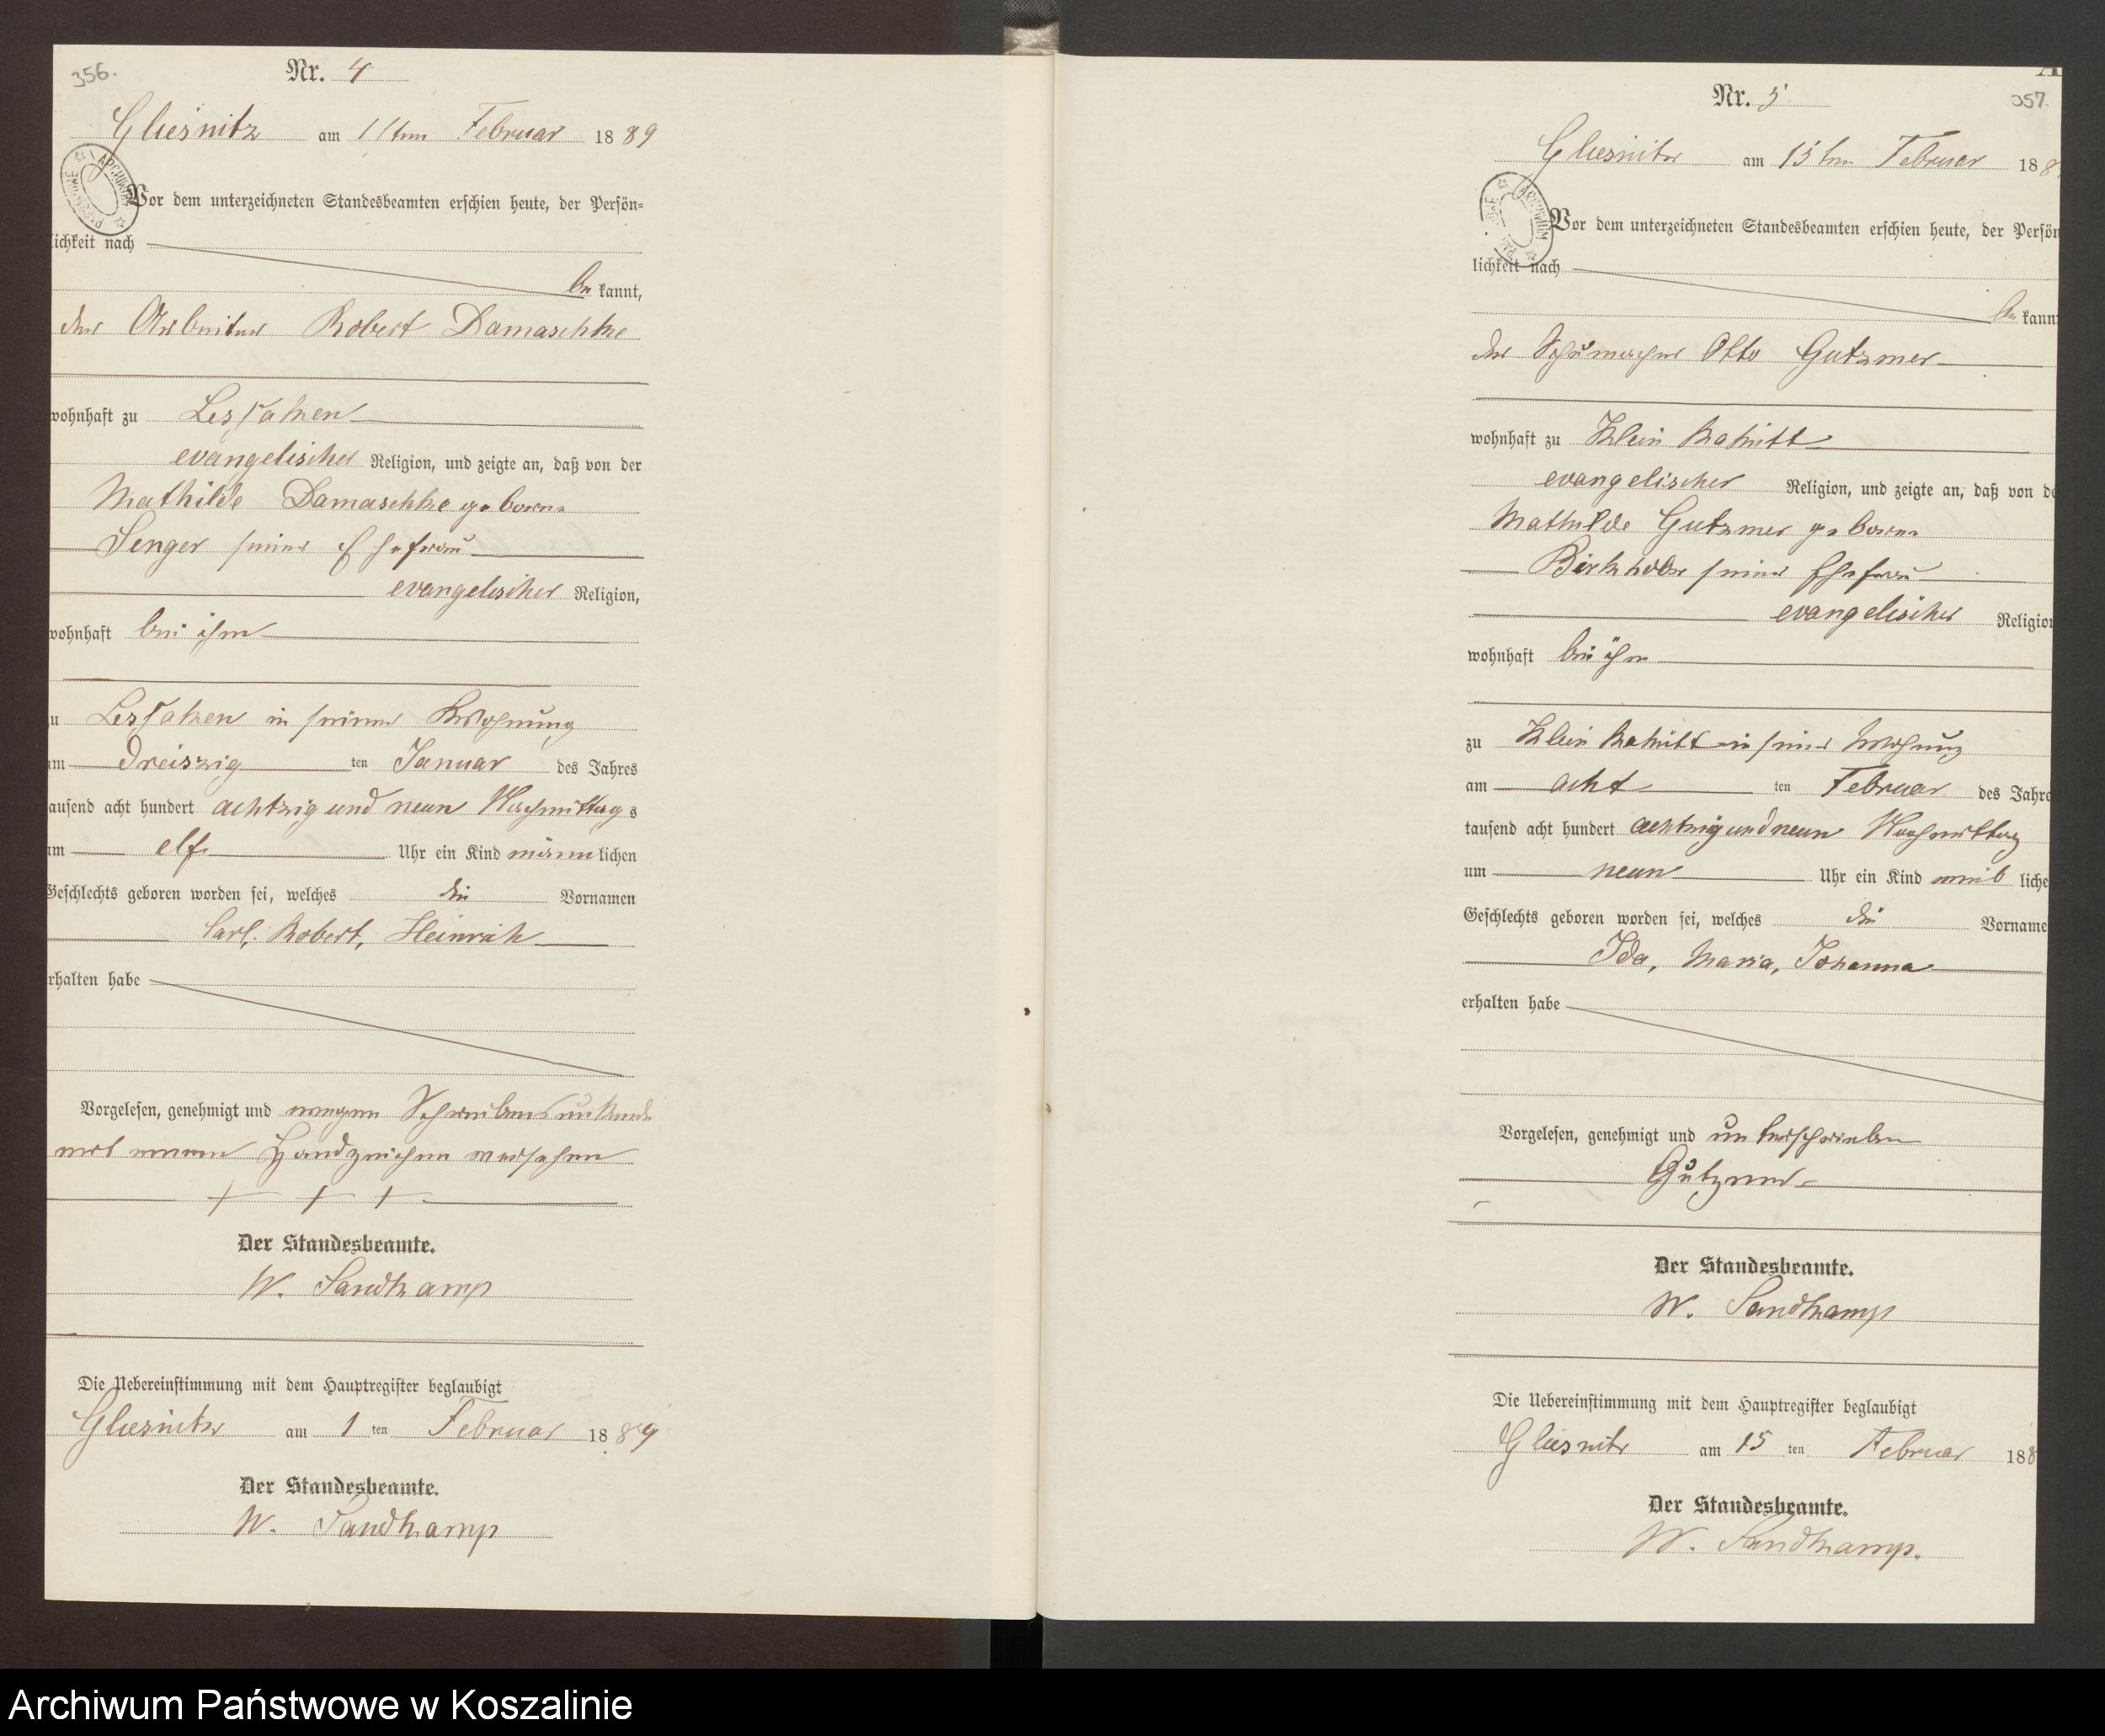 356.
Nr. 4
Gliesnitz am 1ten Februar 1889
ARCHIWUM PAŃSTWOWE
Vor dem unterzeichneten Standesbeamten erschien heute, der Persön-
lichkeit nach
be kannt,
der Arbeiter Robert Damaschke
wohnhaft zu
evangelischer Religion, und zeigte an, daß von der
Mathilde Damaschke geborne
Senger seiner Ehefrau
evangelischer Religion,
wohnhaft bei ihm
zu in seiner Wohnung
am dreiszig ten Januar des Jahres
tausend acht hundert achtzig und neun Nachmittags
um elf Uhr ein Kind männ lichen
Geschlechts geboren worden sei, welches die Vornamen
Carl, Robert, Heinrich
erhalten habe
Vorgelesen, genehmigt und wegen Schreibensunkunde
mit einem Handzeichen versehen
+ + +
Der Standesbeamte.
W. Sandkamp
Die Uebereinstimmung mit dem Hauptregister beglaubigt
Gliesnitz am 1 ten Februar 1889
Der Standesbeamte.
W. Sandkamp
357.
Nr. 5
Gliesnitz am 15ten Februar 188
ARCHIWUM
Vor dem unterzeichneten Standesbeamten erschien heute, der Persön
lichkeit nach
be kann
der Schumacher Otto Gutzmer
wohnhaft zu Klein
evangelischer Religion, und zeigte an, daß von de
Mathilde Gutzmer geborne
Birkholz seiner Ehefrau
evangelischer Religion
wohnhaft bei ihm
zu Klein in seiner Wohnung
am acht ten Februar des Jahre
tausend acht hundert achtzig und neun Nachmittag
um neun Uhr ein Kind weib liche
Geschlechts geboren worden sei, welches die Vorname
Ida, Maria, Johanna
erhalten habe
Vorgelesen, genehmigt und unterschrieben
Gutzmer
Der Standesbeamte.
W. Sandkamp
Die Uebereinstimmung mit dem Hauptregister beglaubigt
Gliesnitz am 15 ten Februar 188
Der Standesbeamte.
W. Sandkamp.
Archiwum Państwowe w Koszalinie